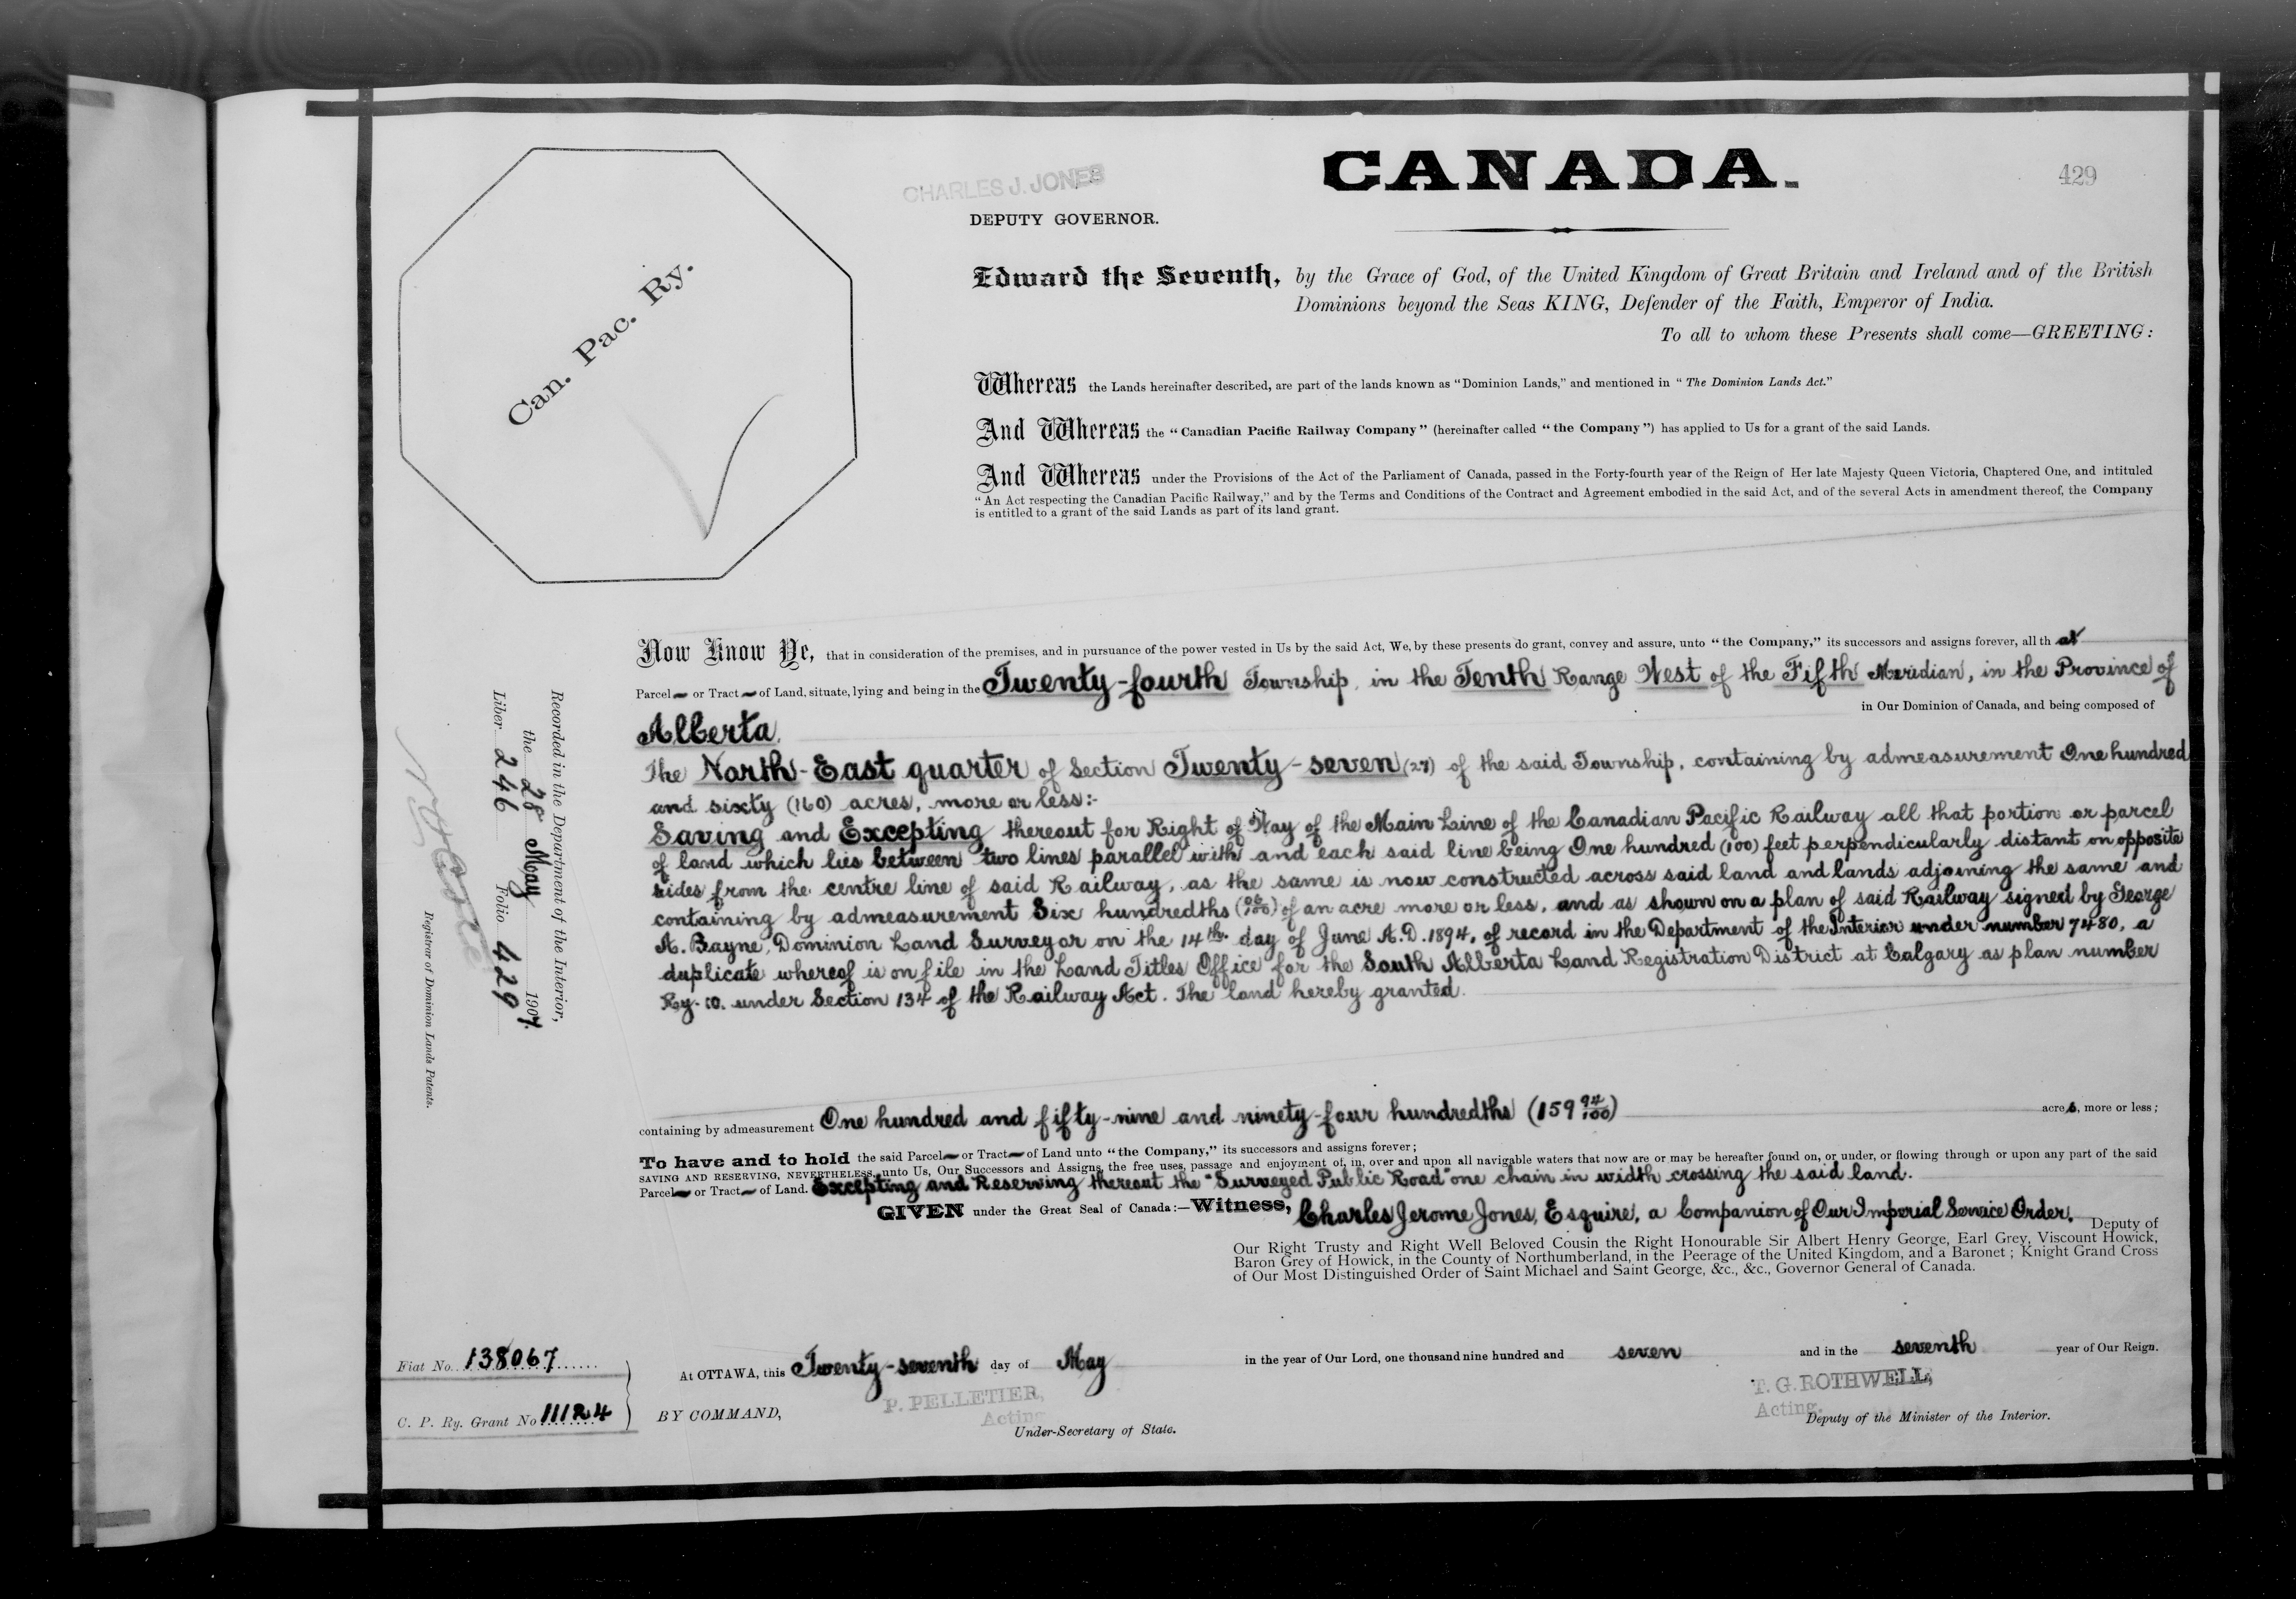 CANADA.
429
CHARLES J. JONES
DEPUTY GOVERNOR.
Can. Pac. Ry.
Edward the Seventh, by the Grace of God, of the United Kingdom of Great Britain and Ireland and of the British
Dominions beyond the Seas KING, Defender of the Faith, Emperor of India.
To all to whom these Presents shall come—GREETING:
Whereas the Lands hereinafter described, are part of the lands known as "Dominion Lands," and mentioned in "The Dominion Lands Act."
And Whereas the "Canadian Pacific Railway Company" (hereinafter called "the Company") has applied to Us for a grant of the said Lands.
And Whereas under the Provisions of the Act of the Parliament of Canada, passed in the Forty-fourth year of the Reign of Her late Majesty Queen Victoria, Chaptered One, and intituled
"An Act respecting the Canadian Pacific Railway," and by the Terms and Conditions of the Contract and Agreement embodied in the said Act, and of the several Acts in amendment thereof, the Company
is entitled to a grant of the said Lands as part of its land grant.
Now Know Ye, that in consideration of the premises, and in pursuance of the power vested in Us by the said Act, We, by these presents do grant, convey and assure, unto "the Company," its successors and assigns forever, all that
Parcel or Tract of Land, situate, lying and being in the Twenty-fourth Township, in the Tenth Range West of the Fifth Meridian, in the Province of
Alberta. in Our Dominion of Canada, and being composed of
The North-East quarter of Section Twenty-seven (27) of the said Township, containing by admeasurement One hundred
and sixty (160) acres, more or less:-
Saving and Excepting thereout for Right of Way of the Main Line of the Canadian Pacific Railway all that portion or parcel
of land which lies between two lines parallel with and each said line being One hundred (100) feet perpendicularly distant on opposite
sides from the centre line of said Railway, as the same is now constructed across said land and lands adjoining the same and
containing by admeasurement Six hundredths (06/100) of an acre more or less, and as shown on a plan of said Railway signed by George
A. Bayne, Dominion Land Surveyor on the 14th day of June A.D. 1894, of record in the Department of the Interior under number 7480, a
duplicate whereof is on file in the Land Titles Office for the South Alberta Land Registration District at Calgary as plan number
Ry. 10. under Section 134 of the Railway Act. The land hereby granted.
containing by admeasurement One hundred and fifty-nine and ninety-four hundredths (159 94/100) acres, more or less;
To have and to hold the said Parcel or Tract of Land unto "the Company," its successors and assigns forever;
SAVING AND RESERVING, NEVERTHELESS, unto Us, Our Successors and Assigns, the free uses, passage and enjoyment of, in, over and upon all navigable waters that now are or may be hereafter found on, or under, or flowing through or upon any part of the said
Parcel or Tract of Land. Excepting and Reserving thereout the "Surveyed Public Road" one chain in width crossing the said land.
GIVEN under the Great Seal of Canada:—Witness, Charles Jerome Jones, Esquire, a Companion of Our Imperial Service Order, Deputy of
Our Right Trusty and Right Well Beloved Cousin the Right Honourable Sir Albert Henry George, Earl Grey, Viscount Howick,
Baron Grey of Howick, in the County of Northumberland, in the Peerage of the United Kingdom, and a Baronet; Knight Grand Cross
of Our Most Distinguished Order of Saint Michael and Saint George, &c., &c., Governor General of Canada.
At OTTAWA, this Twenty-seventh day of May in the year of Our Lord, one thousand nine hundred and seven and in the seventh year of Our Reign.
BY COMMAND,
P. PELLETIER,
Acting
Under-Secretary of State.
T. G. ROTHWELL,
Acting.
Deputy of the Minister of the Interior.
Fiat No. 138067
C. P. Ry. Grant No 11124
Recorded in the Department of the Interior,
the 28 May 1907.
Liber 246 Folio 429
Registrar of Dominion Lands Patents.